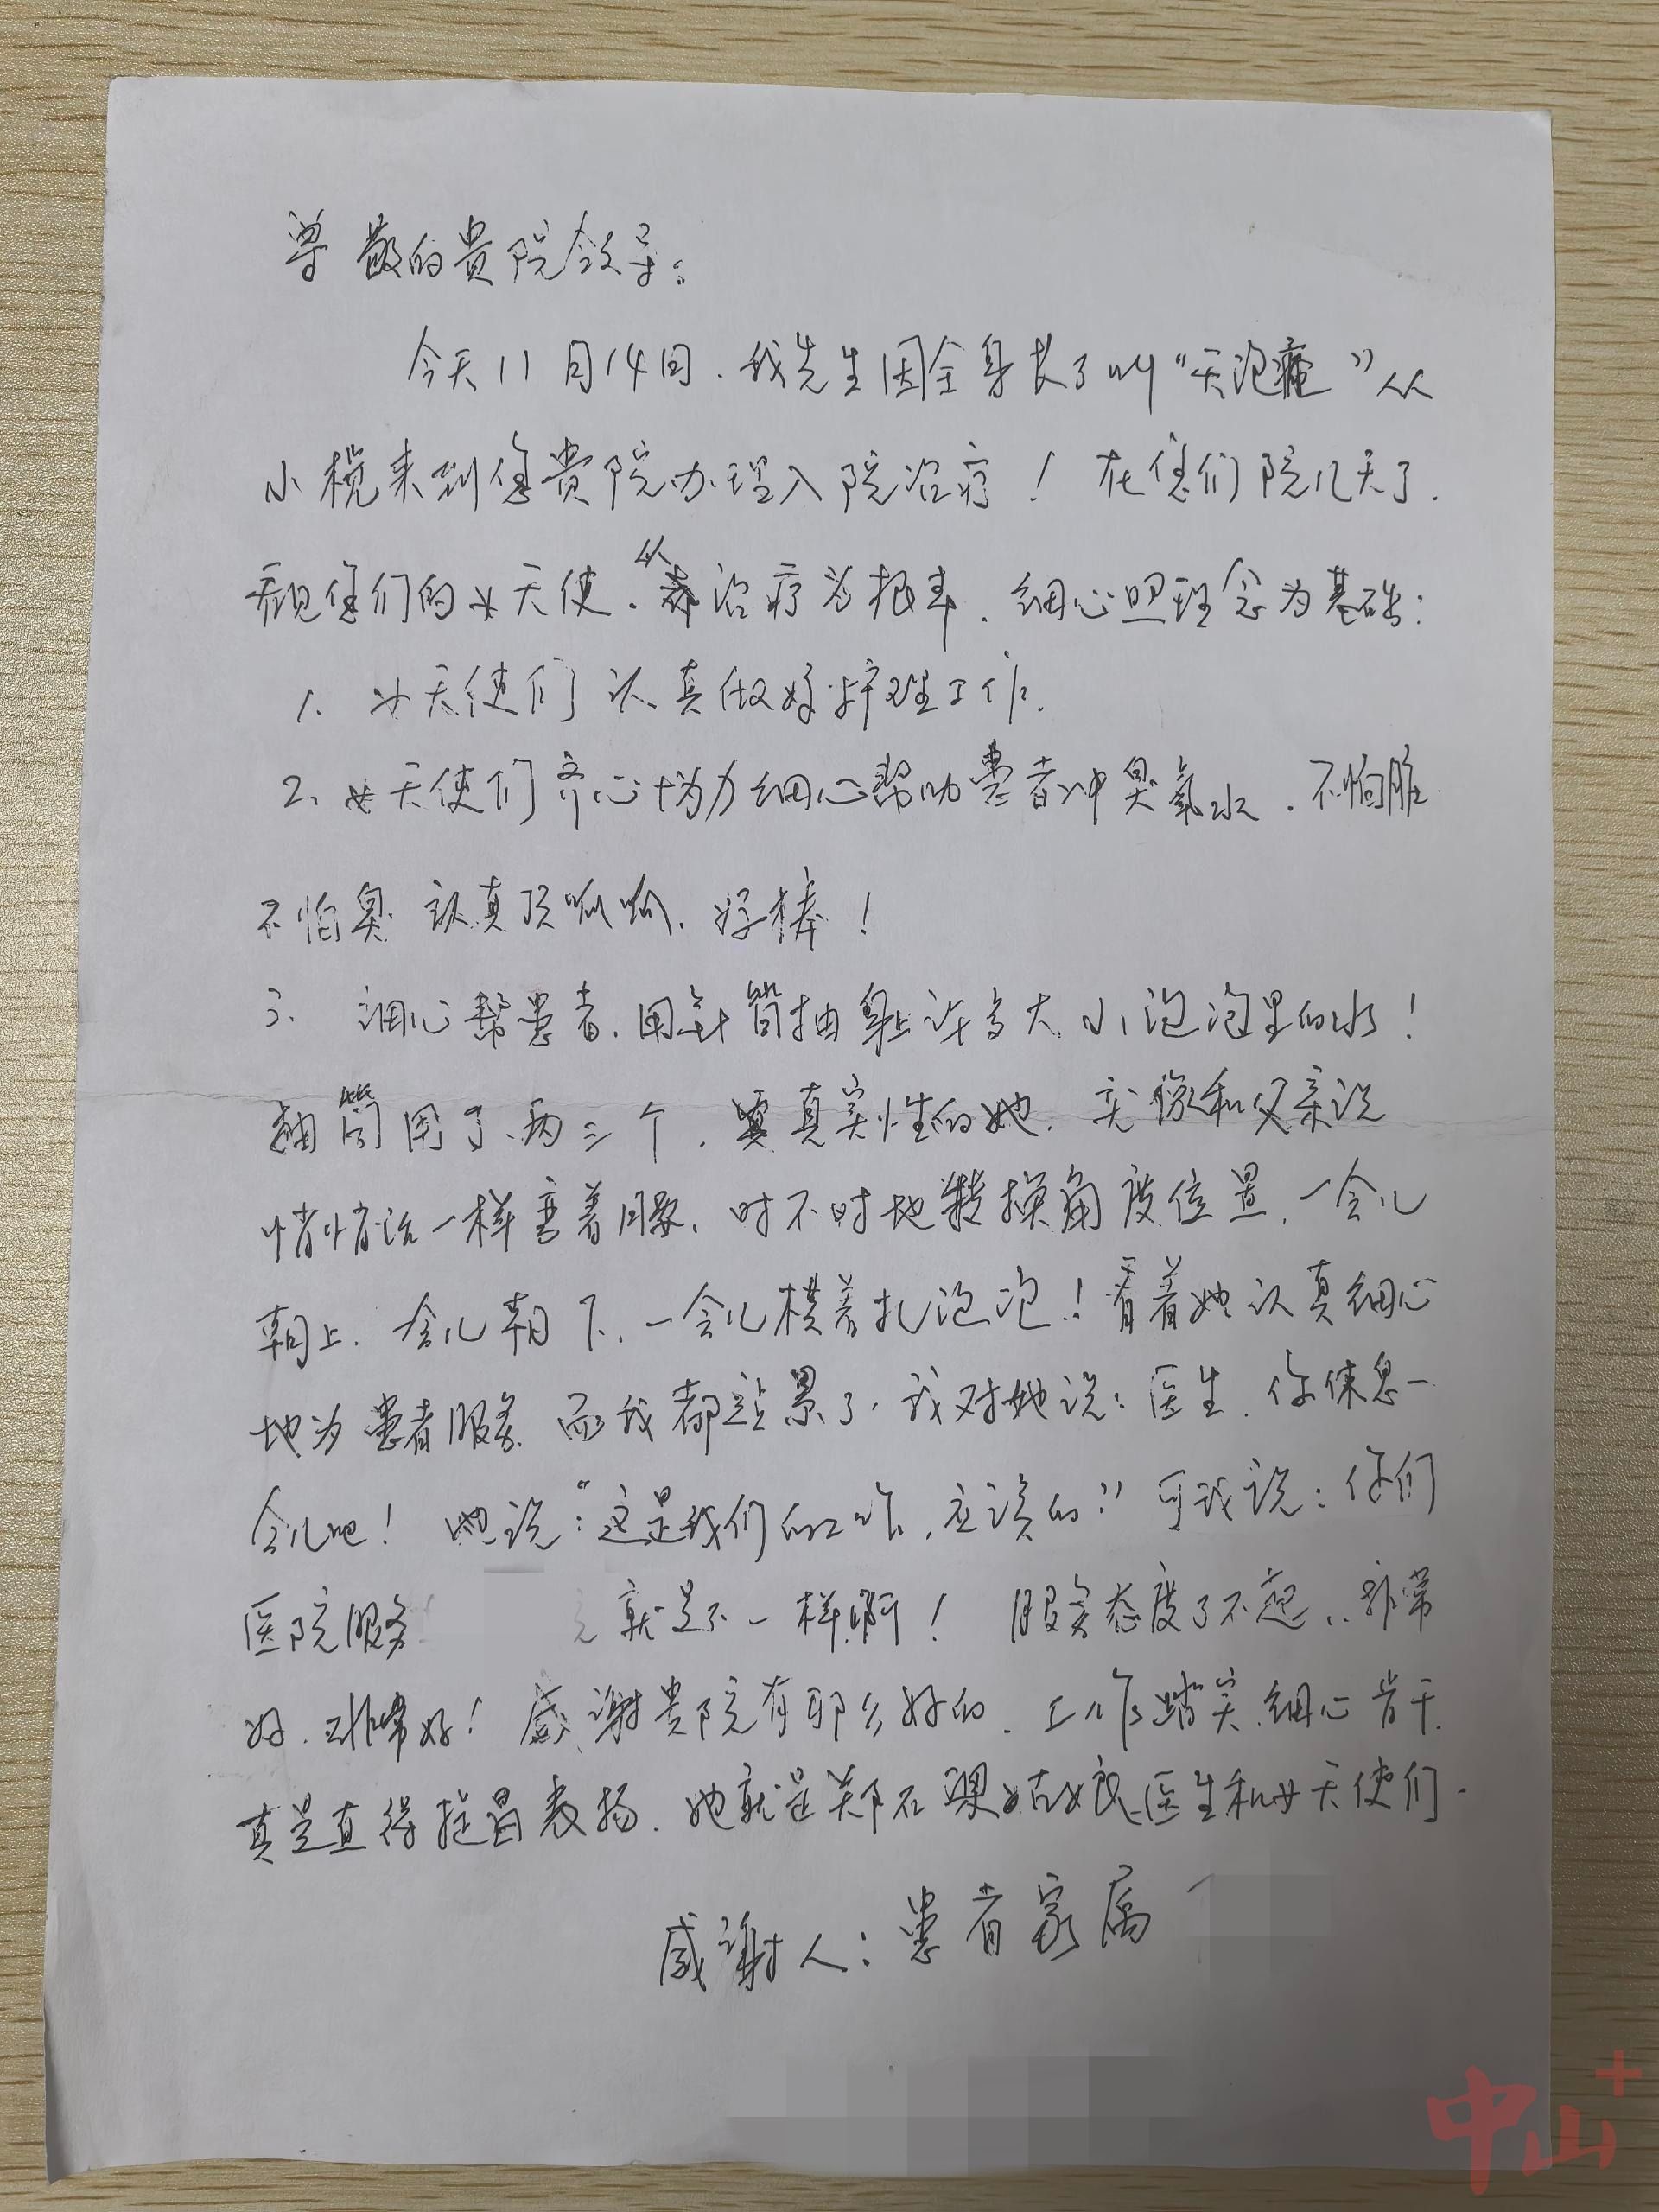 尊敬的贵院领导:
今天11月14日.我先生因全身长了叫“天泡疮”从
小榄来到您贵院办理入院治疗!在您们院几天了.
观您们的女天使.从治疗为根本.细心照理念为基础:
1.女天使们认真做好护理工作.
2.女天使们齐心协力细心帮助患者冲臭氧水.不怕脏
不怕臭 认真顶呱呱.好棒!
3.细心帮患者.用针筒抽身上许多大小泡泡里的水!
抽筒用了两三个.真实性的她.就像和父亲说
悄悄话一样弯着腰.时不时地转换角度位置.一会儿
朝上.会儿朝下.一会儿横着扎泡泡!看着她认真细心
地为患者服务.而我都站累了.我对她说:医生.你休息一
会儿吧!她说:“这是我们的工作.应该的”可我说:你们
医院服务 就是不一样啊!服务态度了不起..非常
好.非常好!感谢贵院有那么好的.工作踏实.细心肯干.
真是直得提昌表扬.她就是郑石 姑娘医生和女天使们.
感谢人:患者家属
中山+